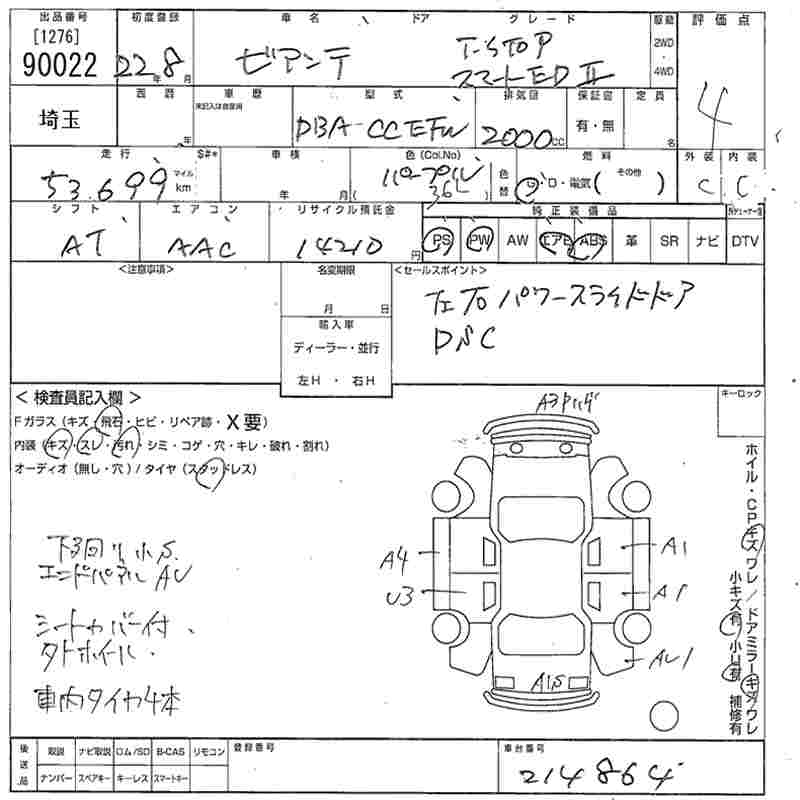 出品番号 初度登録 車名 ドア グレード 駆動 評価点
[1276]
90022 22年8月 ビアンテ I-STOP 2WD
スマートED II 4WD
4
西暦 車歴 型式 排気量 保証書 定員
未記入は自家用
埼玉 年 DBA-CCEFW 2000cc 有・無 名
走行 S#* 車検 色(Col.No) 燃料 外装 内装
53,699 マイル km 年 月 パープル 色替 G・D・電気( その他 ) C C
36L
シフト エアコン リサイクル預託金 純正装備品
AT AAC 14210円 PS PW AW エアB ABS 革 SR ナビ DTV
<注意事項> 名変期限 <セールスポイント>
月 日 左右パワースライドドア
輸入車 DSC
ディーラー・並行
左H ・ 右H
<検査員記入欄> キーロック
Fガラス(キズ・飛石・ヒビ・リペア跡・X要)
内装(キズ・スレ・汚れ・シミ・コゲ・穴・キレ・破れ・割れ)
オーディオ(無し・穴)/タイヤ(スタッドレス)
A4 A1
U3 A1
AU1
A1S
シートカバー付、
車内タイヤ4本
ホイル・CPキズワレ/ドアミラーキズワレ
小キズ有 小凹有 補修有
後送品 取説 ナビ取説 ロム/SD B-CAS リモコン 登録番号 車台番号
ナンバー スペアキー キーレス スマートキー 214864